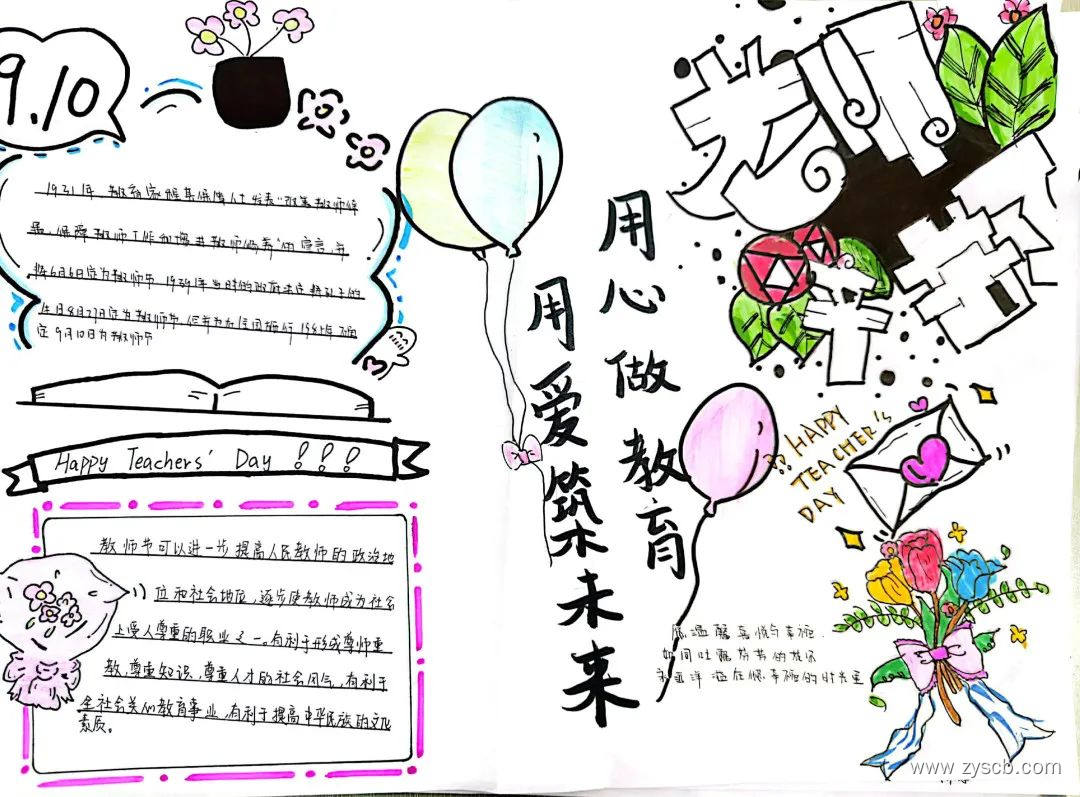 9.10
1931年 教育家邰爽秋等人 发表"改善教师待
遇,保障教师工作和增进教师修养"的宣言,并
将6月6日定为教师节 1939年当时的政府决定将孔子的
生月8月27日定为教师节 但并为在民间推行 1985年
定 9月10日为教师节
Happy Teachers' Day !!!
教师节可以进一步提高人民教师的政治地
位和社会地位,逐步使教师成为社会
上受人尊重的职业之一。有利于形成尊师重
教,尊重知识,尊重人才的社会风气,有利于
全社会关心教育事业,有利于提高中华民族的文化
素质。
用心做教育
用爱築未来
老师
节
HAPPY
TEACHER'S
DAY
温馨喜悦与幸福
如同吐露芬芳的花朵
洋溢在幸福的时光里
www.zyscb.com